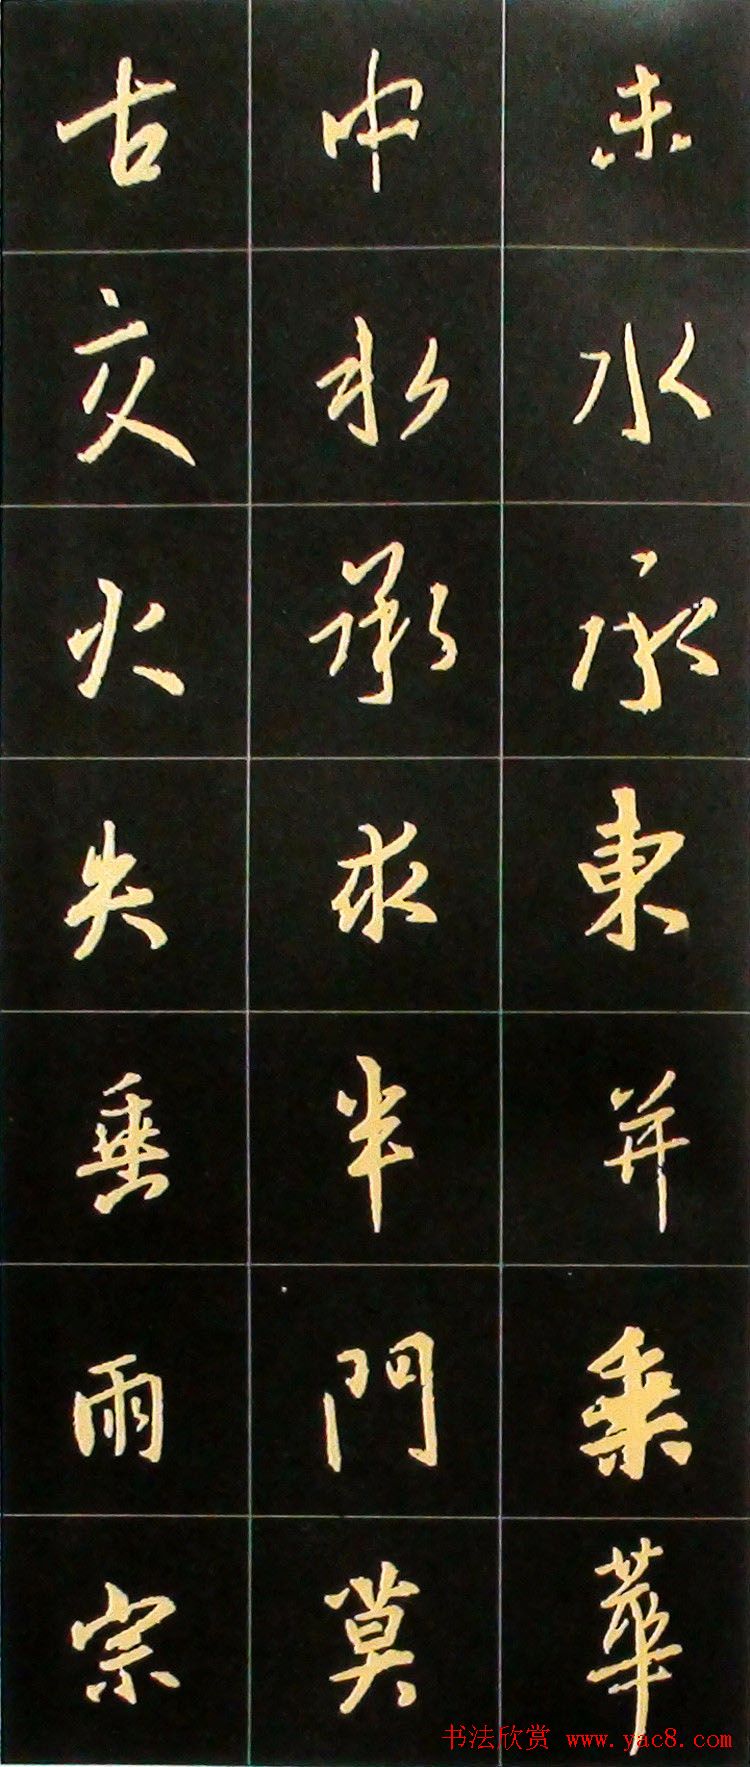 未水承東并乘華
中水承求半門莫
古交火失垂雨宗
书法欣赏 www.yac8.com